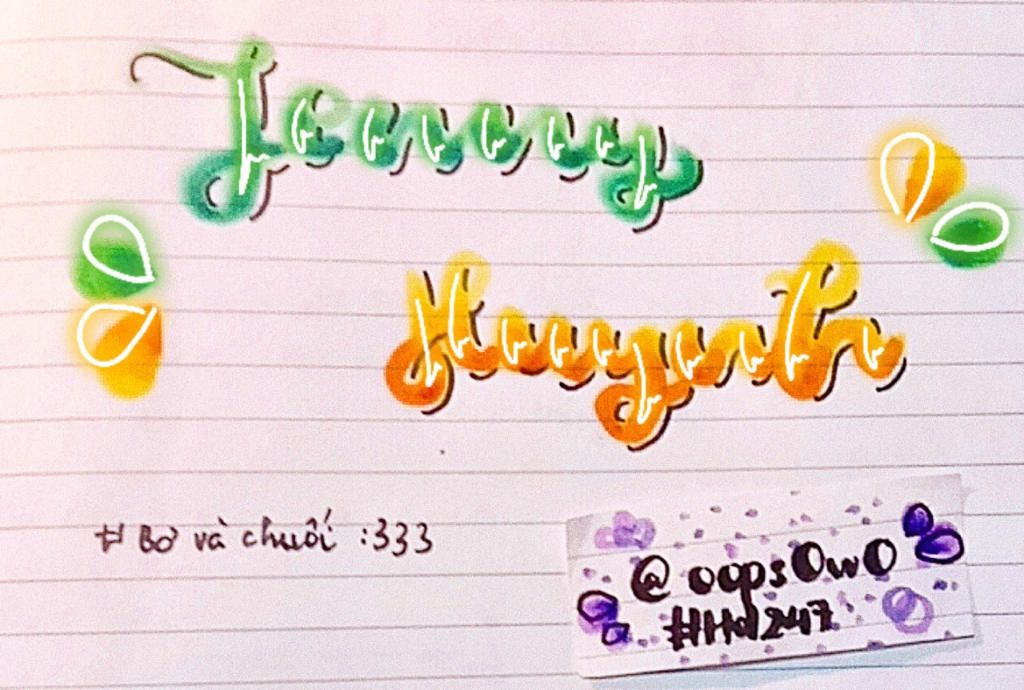 Jenny
Huynh
# Bơ và chuối :333
@oopsOwO
#Hd247